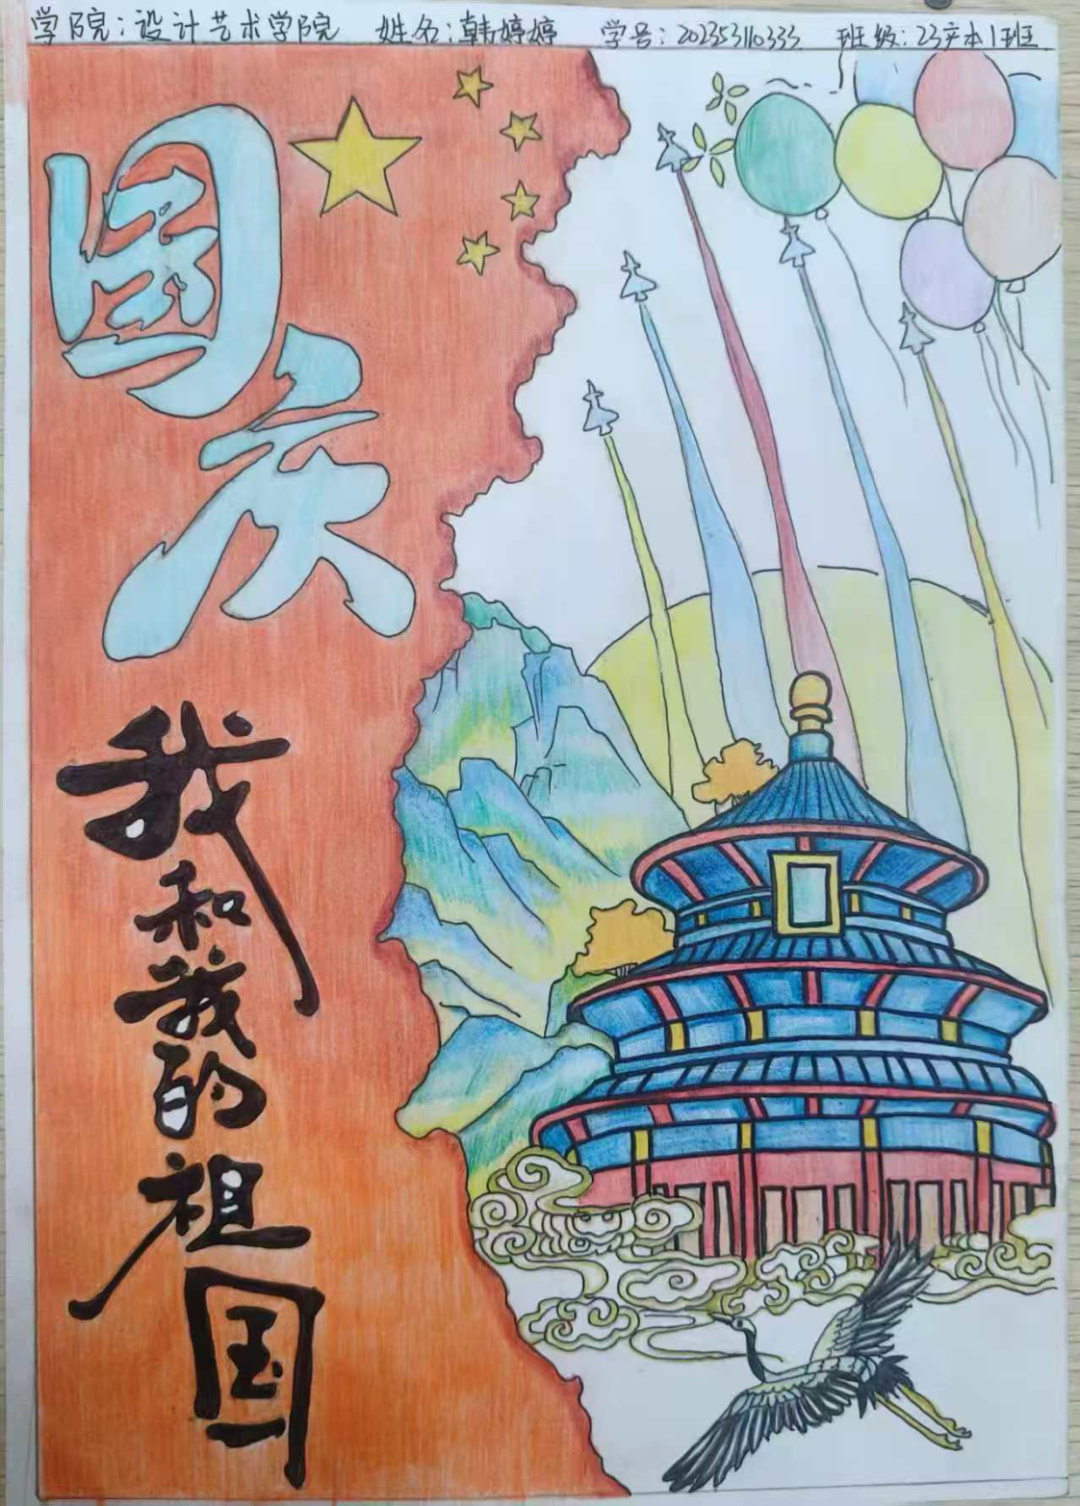 学院：设计艺术学院 姓名：韩婷婷 学号：202353110333 班级：23产本1班
国庆
我和我的祖国